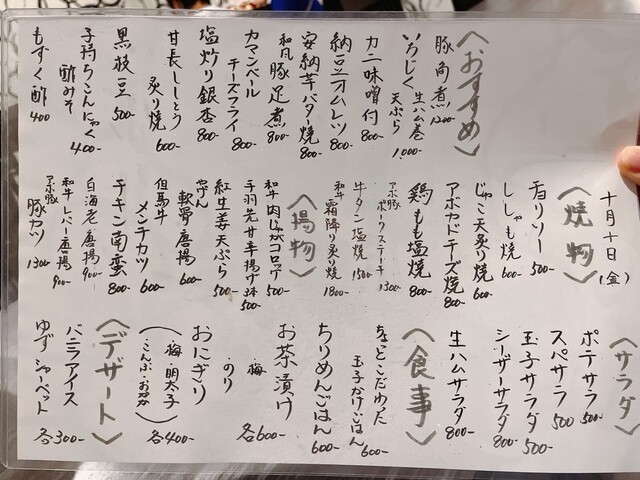 〈おすすめ〉
豚角煮 1200-
いちじく生ハム巻天ぷら 1,000-
カニ味噌付 800-
納豆オムレツ 800-
安納芋バタ焼 800-
和風豚足煮 800-
カマンベールチーズフライ 800-
塩炒り銀杏 800-
甘長ししとう炙り焼 600-
黒枝豆 500-
子持ちこんにゃく酢みそ 400-
もずく酢 400
十月十日(金)
〈焼物〉
チョリソー 500-
ししゃも焼 600-
じゃこ天炙り焼 600-
アボカドチーズ焼 800-
鶏もも塩焼 800-
アホ豚ポークステーキ 1300-
牛タン塩焼 1500-
和牛霜降り炙り焼 1800-
〈揚物〉
和牛肉じゃがコロッケ 500-
手羽先甘辛揚げ 3本 500-
紅生姜天ぷら 500-
やげん軟骨唐揚 600-
但馬牛メンチカツ 600-
チキン南蛮 800-
白海老唐揚 900-
和牛レバー唐揚 900-
アホ豚豚カツ 1300-
〈サラダ〉
ポテサラ 500
スパサラ 500
玉子サラダ 500-
シーザーサラダ 800-
生ハムサラダ 800-
〈食事〉
ちょっとこだわった玉子かけごはん 600-
ちりめんごはん 600-
お茶漬け
梅
のり
各600-
おにぎり
(梅・明太子
・こんぶ・おかか)
各400-
〈デザート〉
バニラアイス
ゆずシャーベット
各300-